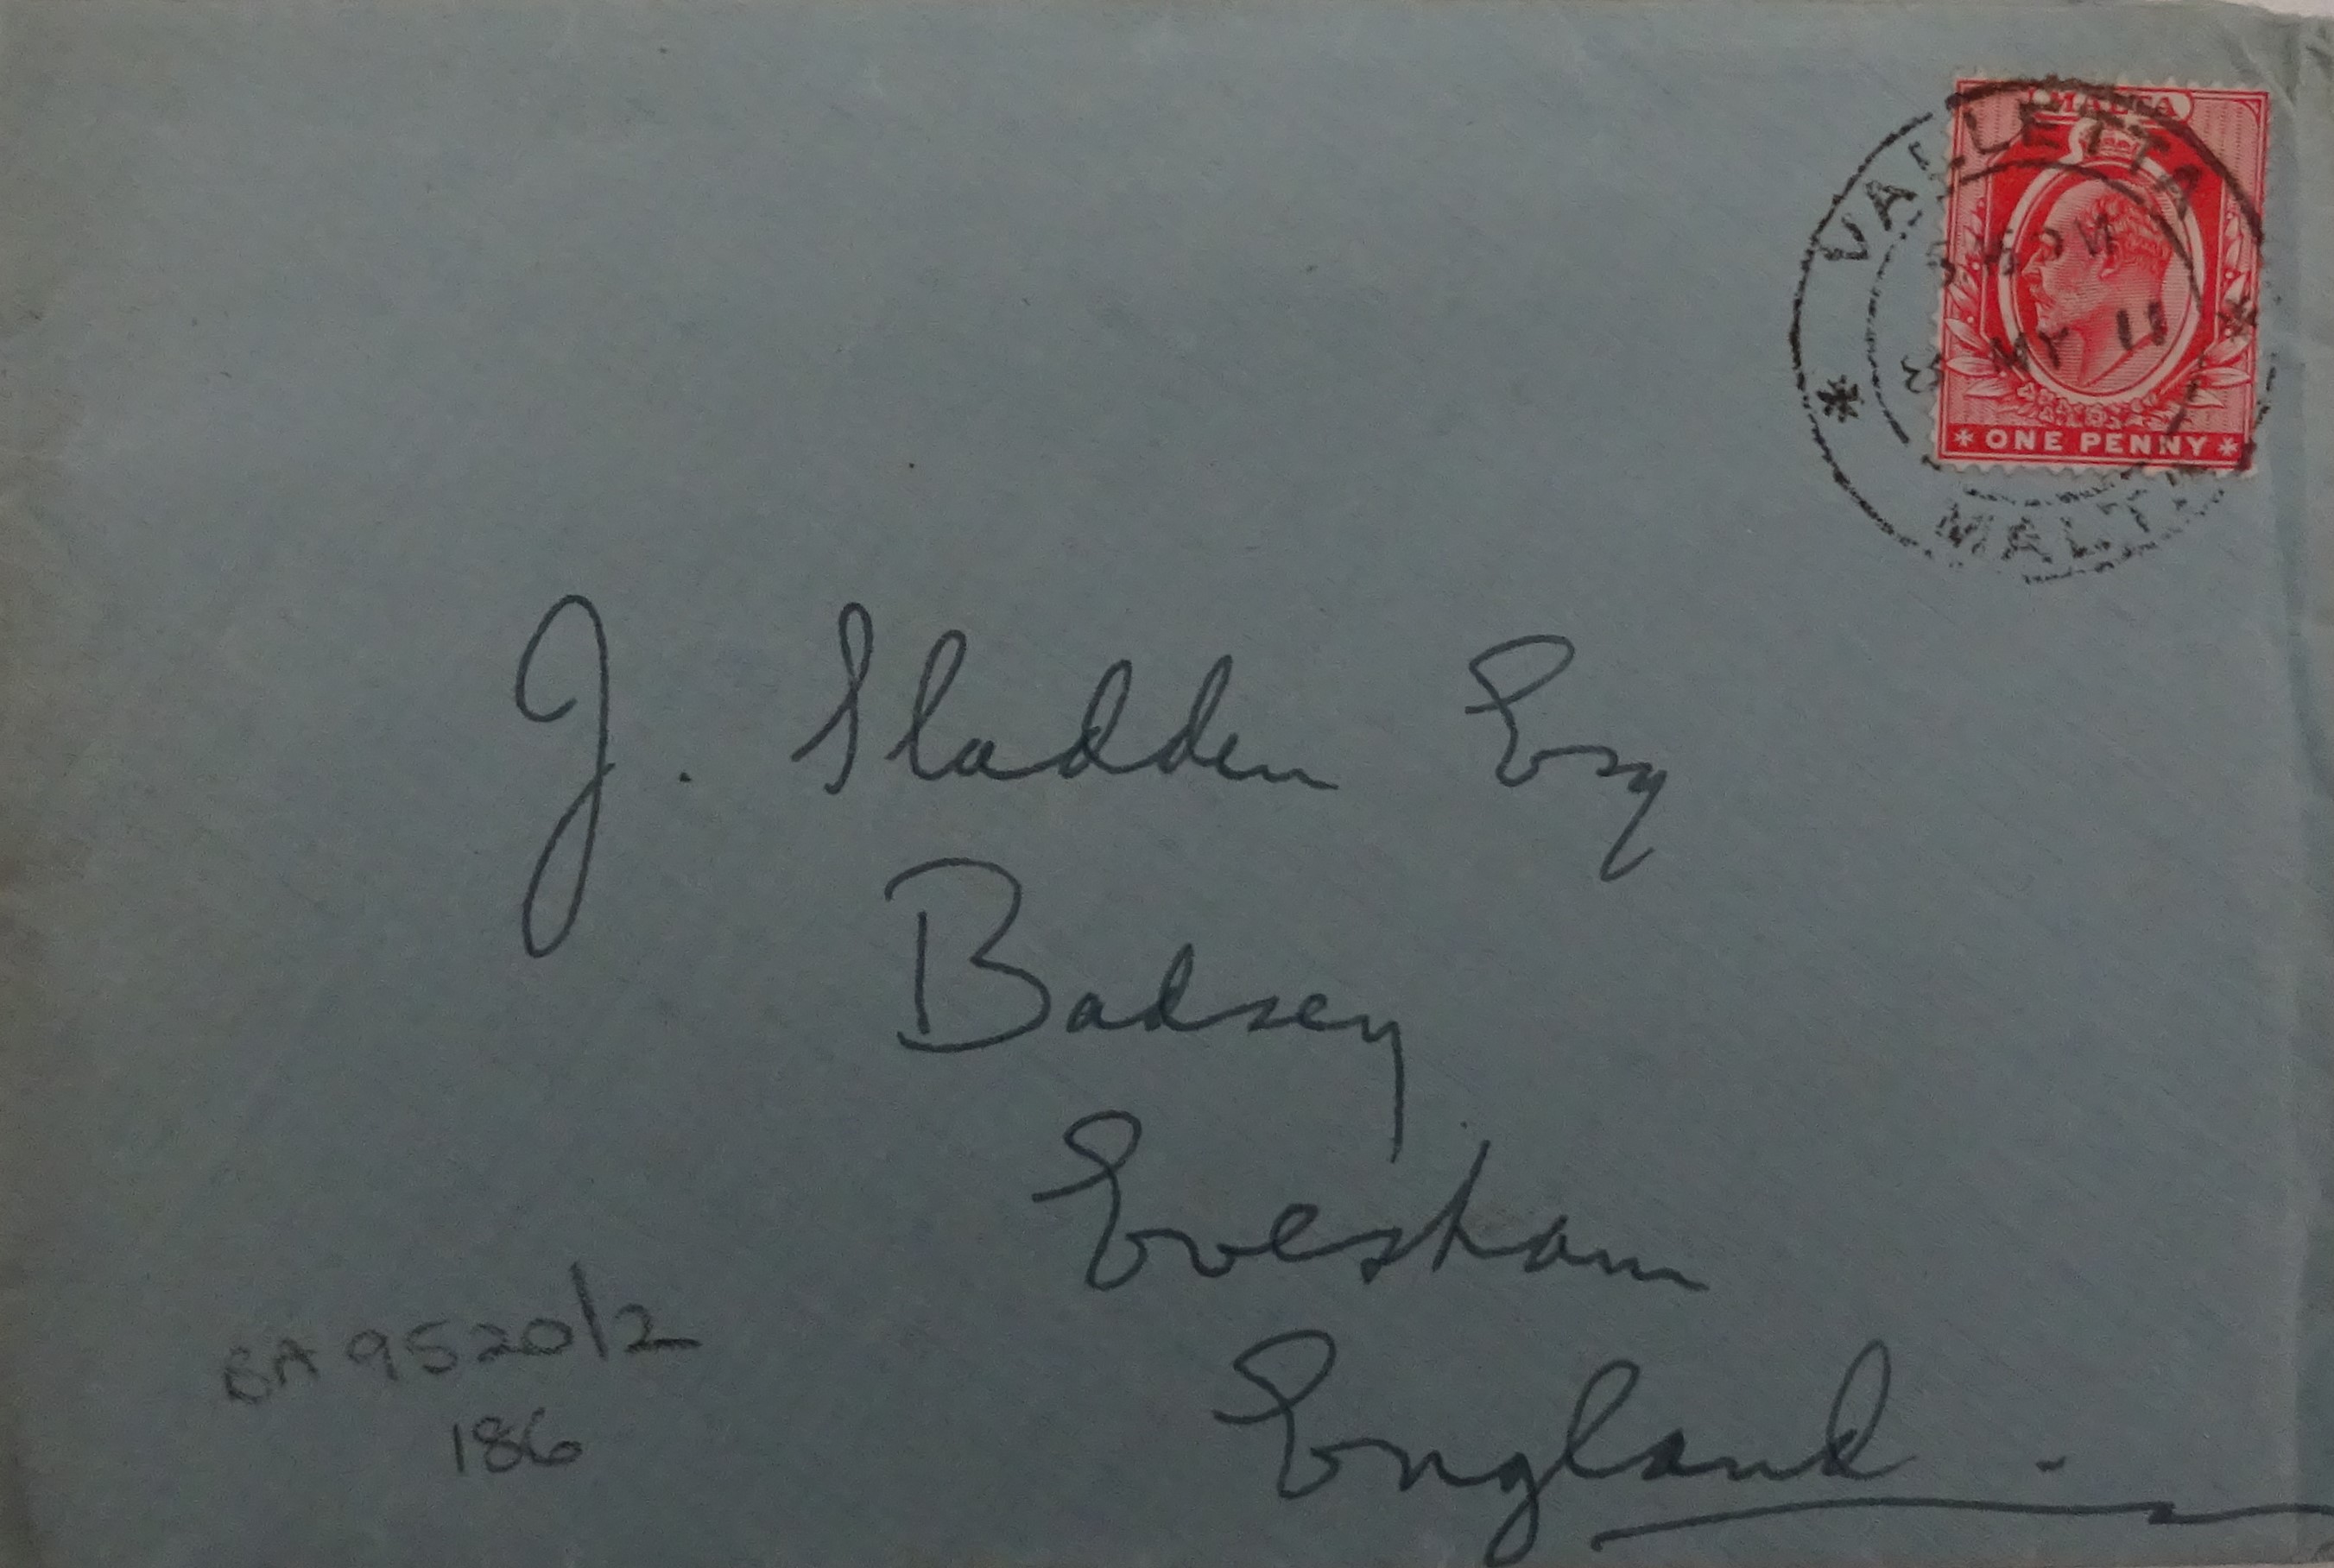 MALTA
VALLETTA
PM
MY 11
* ONE PENNY *
MALTA
J. Sladden Esq
Badsey
Evesham
England.
BA 9520/2
186